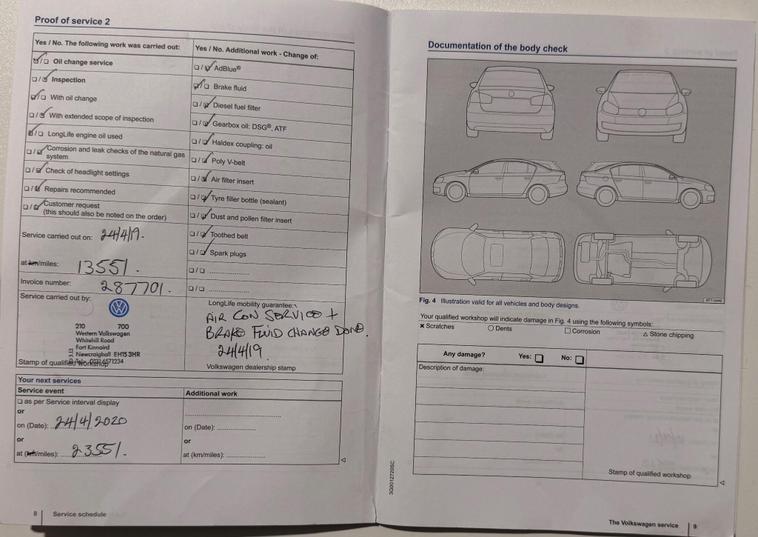 Proof of service 2
Yes / No. The following work was carried out:
☑/☐ Oil change service
☐/☑ Inspection
☑/☐ With oil change
☐/☑ With extended scope of inspection
☑/☐ LongLife engine oil used
☐/☑ Corrosion and leak checks of the natural gas
system
☐/☑ Check of headlight settings
☐/☑ Repairs recommended
☐/☑ Customer request
(this should also be noted on the order)
Service carried out on: 24/4/19.
at km/miles: 13551.
Invoice number: 287701.
Service carried out by:
210 700
Western Volkswagen
Whitehill Road
Fort Kinnaird
Newcraighall EH15 3HR
Stamp of qualified workshop
Yes / No. Additional work - Change of:
☐/☑ AdBlue®
☑/☐ Brake fluid
☐/☑ Diesel fuel filter
☐/☑ Gearbox oil: DSG®, ATF
☐/☑ Haldex coupling: oil
☐/☑ Poly V-belt
☐/☑ Air filter insert
☐/☑ Tyre filler bottle (sealant)
☐/☑ Dust and pollen filter insert
☐/☑ Toothed belt
☐/☑ Spark plugs
☐/☐
☐/☐
LongLife mobility guarantee:
AIR CON SERVICE +
BRAKE FLUID CHANGE DONE.
24/4/19
Volkswagen dealership stamp
Your next services
Service event
☐ as per Service interval display
or
on (Date): 24/4/2020
or
at (km/miles): 23551.
Additional work
on (Date):
or
at (km/miles):
8 Service schedule
Documentation of the body check
Fig. 4 Illustration valid for all vehicles and body designs.
Your qualified workshop will indicate damage in Fig. 4 using the following symbols:
✕ Scratches ○ Dents □ Corrosion △ Stone chipping
Any damage? Yes: ☐ No: ☐
Description of damage:
Stamp of qualified workshop
The Volkswagen service 9